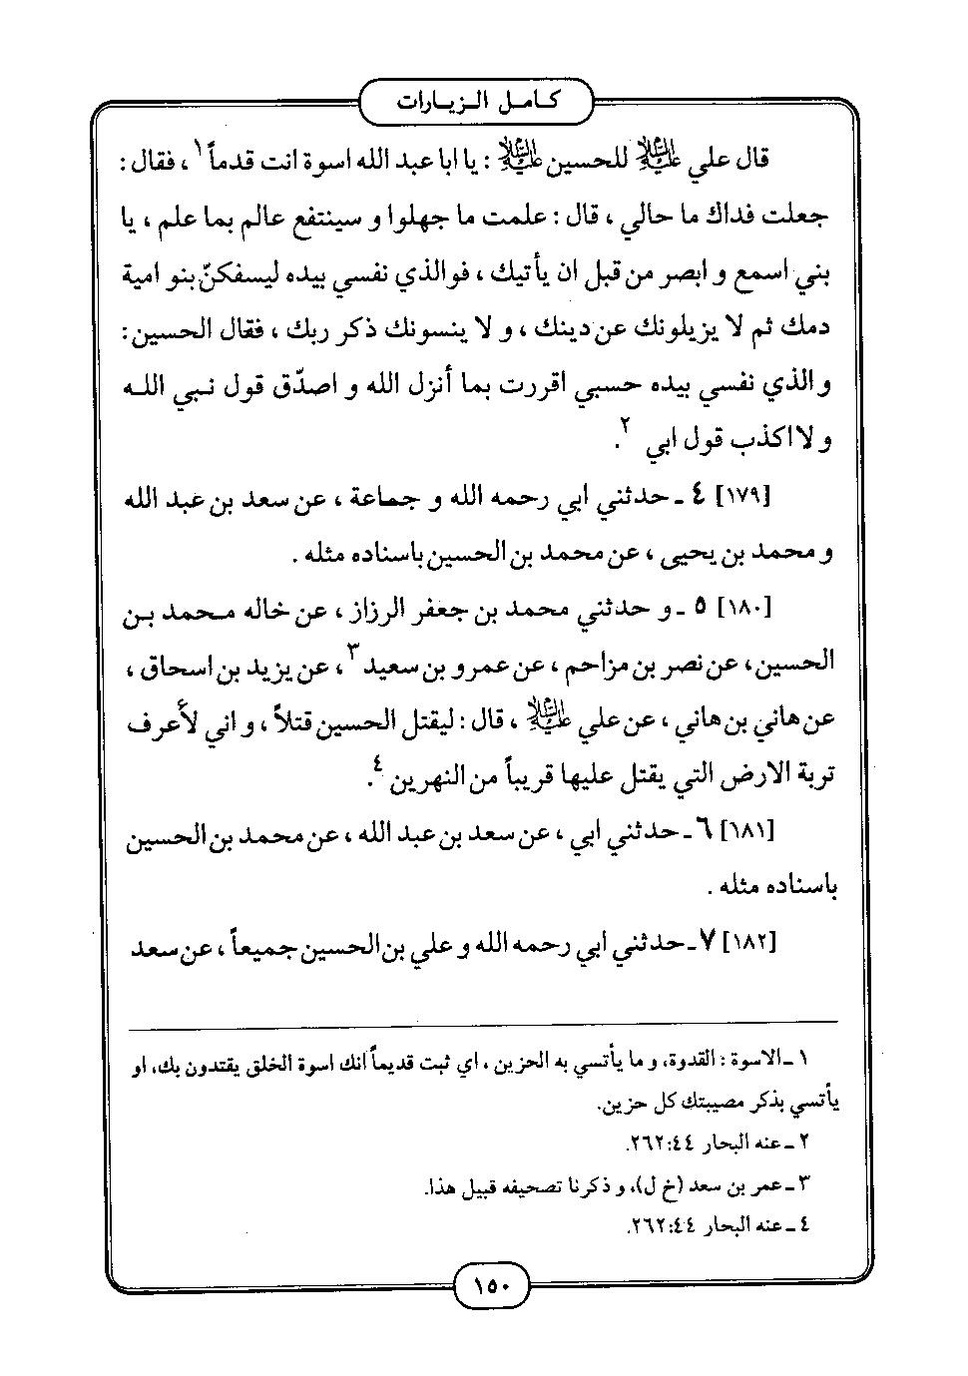 كـامـل الـزيـارات
قال علي عليه السلام للحسين عليه السلام : يا ابا عبد الله اسوة انت قدماً١ ، فقال :
جعلت فداك ما حالي ، قال : علمت ما جهلوا و سينتفع عالم بما علم ، يا
بني اسمع و ابصر من قبل ان يأتيك ، فوالذي نفسي بيده ليسفكنّ بنو امية
دمك ثم لا يزيلونك عن دينك ، و لا ينسونك ذكر ربك ، فقال الحسين :
و الذي نفسي بيده حسبي اقررت بما أنزل الله و اصدّق قول نـبي اللـه
و لا اكذب قول ابي ٢.
[١٧٩] ٤ ـ حدثني ابي رحمه الله و جماعة ، عن سعد بن عبد الله
و محمد بن يحيى ، عن محمد بن الحسين باسناده مثله .
[١٨٠] ٥ ـ و حدثني محمد بن جعفر الرزاز ، عن خاله مـحمد بـن
الحسين، عن نصر بن مزاحم ، عن عمرو بن سعيد٣ ، عن يزيد بن اسحاق ،
عن هاني بن هاني ، عن علي عليه السلام ، قال : ليقتل الحسين قتلاً ، و اني لأعرف
تربة الارض التي يقتل عليها قريباً من النهرين ٤.
[١٨١] ٦ ـ حدثني ابي ، عن سعد بن عبد الله ، عن محمد بن الحسين
باسناده مثله .
[١٨٢] ٧ ـ حدثني ابي رحمه الله و علي بن الحسين جميعاً ، عن سعد
١ ـ الاسوة : القدوة، و ما يأتسي به الحزين ، اي ثبت قديماً انك اسوة الخلق يقتدون بك، او
يأتسي بذكر مصيبتك كل حزين.
٢ ـ عنه البحار ٤٤:٢٦٢.
٣ ـ عمر بن سعد (خ ل)، و ذكرنا تصحيفه قبيل هذا.
٤ ـ عنه البحار ٤٤:٢٦٢.
١٥٠